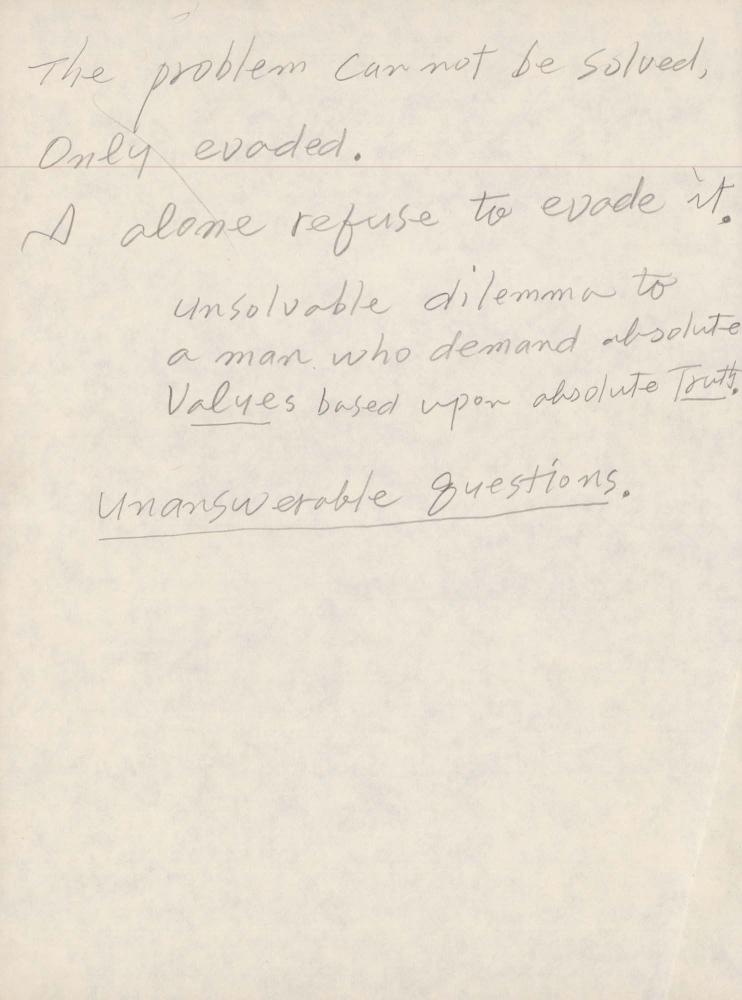 The problem cannot be solved,
Only evaded.
I alone refuse to evade it.
unsolvable dilemma to
a man who demand absolute
Values based upon absolute Truth.
Unanswerable questions.